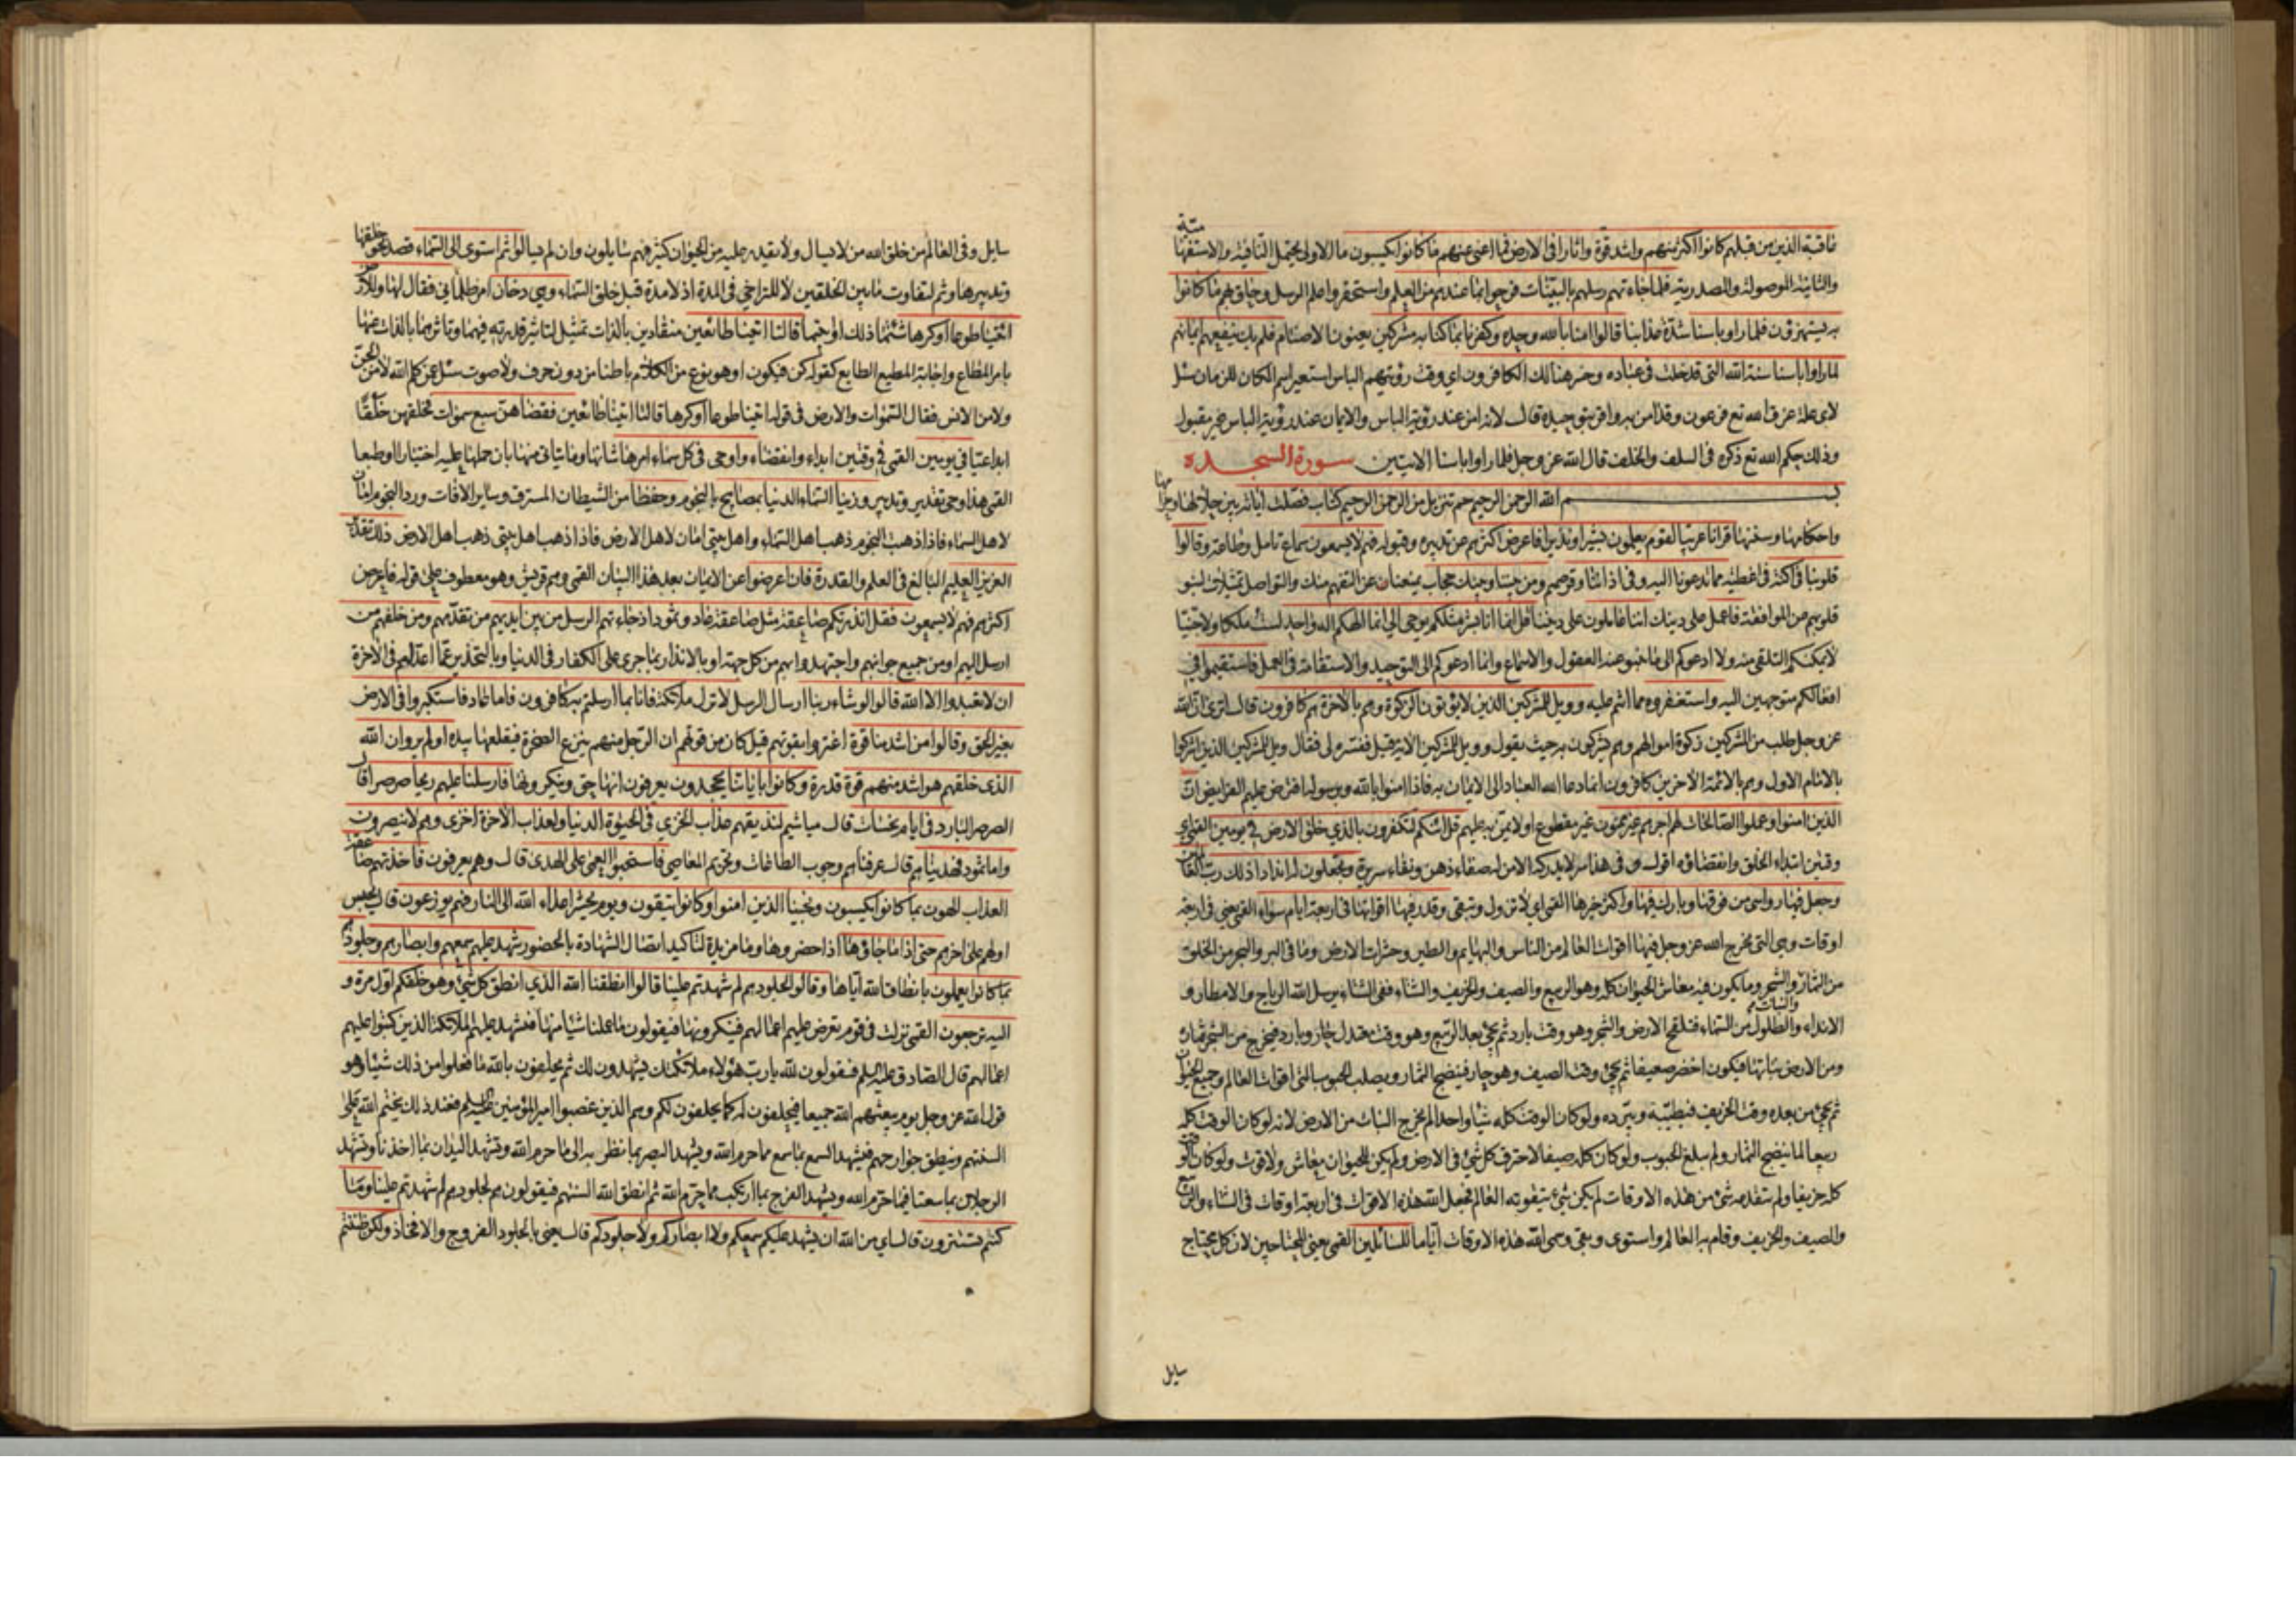 عاقبة الذين من قبلهم كانوا اكثر منهم واشد قوة واثارا في الارض فما اغنى عنهم ما كانوا يكسبون ما الاولى يحتمل النافية والاستفها
مية
والثانية الموصولة والمصدرية فلما جاءتهم رسلهم بالبينات فرحوا بما عندهم من العلم واستحقروا علم الرسل وحاق بهم ما كانوا
به يستهزؤن فلما راوا باسنا شدة عذابنا قالوا امنا بالله وحده وكفرنا بما كنا به مشركين يعنون الاصنام فلم يك ينفعهم ايمانهم
لما راوا باسنا سنة الله التي قد خلت في عباده وخسر هنالك الكافرون اي وقت رؤيتهم الباس استعير اسم المكان للزمان سئل
لاي علة غرق الله تع فرعون وقد امن به واقر بتوحيده قال لانه امن عند رؤية الباس والايمان عند رؤية الباس غير مقبول
وذلك حكم الله تع ذكره في السلف والخلف قال الله عز وجل فلما راوا باسنا الايتين سورة السجده
بسم الله الرحمن الرحيم حم تنزيل من الرحمن الرحيم كتاب فصلت اياته بين حلالها وحرا
مها
واحكامها وسننها قرانا عربيا لقوم يعلمون بشيرا ونذيرا فاعرض اكثرهم عن تدبره وقبوله فهم لا يسمعون سماع تامل وطاعة وقالوا
قلوبنا في اكنة في اغطية مما تدعونا اليه وفي اذاننا وقر صمم ومن بيننا وبينك حجاب يمنعنا عن التفهم منك والتواصل تمثيلات لنبو
قلوبهم من الموافقة فاعمل على دينك اننا عاملون على ديننا قل انما انا بشر مثلكم يوحى الي انما الهكم اله واحد لست ملكا ولا جنيا
لا يمكنكم التلقي منه ولا ادعوكم الى ما ينبو عنه العقول والاسماع وانما ادعوكم الى التوحيد والاستقامة في العمل فاستقيموا في
افعالكم متوجهين اليه واستغفروه مما انتم عليه وويل للمشركين الذين لا يؤتون الزكوة وهم بالاخرة هم كافرون قال اترى ان الله
عز وجل طلب من المشركين زكوة اموالهم وهم يشركون به حيث يقول وويل للمشركين الاية قيل فسره لي فقال ويل للمشركين الذين اشركوا
بالامام الاول وهم بالائمة الاخرين كافرون انما دعا الله العباد الى الايمان به فاذا امنوا بالله وبرسوله افترض عليهم الفرايض ان
الذين امنوا وعملوا الصالحات لهم اجر غير ممنون غير مقطوع او لا يمن به عليهم قل ائنكم لتكفرون بالذي خلق الارض في يومين القمي اي
وقتين ابتداء الخلق وانقضاؤه اقول وفي هذا سر لا يدركه الا من له صفاء ذهن ونقاء سريرة وتجعلون له اندادا ذلك رب العا
لمين
وجعل فيها رواسي من فوقها وبارك فيها واكثر خيرها القمي اي لا تزول وتبقى وقدر فيها اقواتها في اربعة ايام سواء القمي يعني في اربعة
اوقات وهي التي يخرج الله عز وجل فيها اقوات العالم من الناس والبهايم والطير وحشرات الارض وما في البر والبحر من الخلق
من الثمار والشجر وما يكون فيه معاش الحيوان كله وهو الربيع والصيف والخريف والشتاء ففي الشتاء يرسل الله الرياح والامطار و
والنبات
الانداء والطلول من السماء فتلقح الارض والشجر وهو وقت بارد ثم يجئ بعد الربيع وهو وقت معتدل حار وبارد فيخرج من الشجر ثماره
ومن الارض نباتها فيكون اخضر ضعيفا ثم يجئ وقت الصيف وهو حار فينضج الثمار ويصلب الحبوب التي اقوات العالم وجميع الحيوان
ثم يجئ من بعده وقت الخريف فيطيبه ويبرده ولو كان الوقت كله شيئا واحدا لم يخرج النبات من الارض لانه لو كان الوقت كله
ربيعا لما ينضج الثمار ولم يبلغ الحبوب ولو كان كله صيفا لاحترق كل شئ في الارض ولم يكن للحيوان معاش ولا قوت ولو كان الوقت
كله خريفا ولم يتقدمه شئ من هذه الاوقات لم يكن شئ يتقوته العالم فجعل الله هذه الاقوات في اربعة اوقات في الشتاء والربيع
والصيف والخريف وقام به العالم واستوى وبقى وسمى الله هذه الاوقات اياما للسائلين القمي يعني المحتاجين لان كل محتاج
سايل
سايل وفي العالم من خلق الله من لا يسال ولا يقدر عليه من الحيوان كثير فهم سايلون وان لم يسالوا ثم استوى الى السماء قصد نحو
خلقها
وتدبيرها وثم لتفاوت ما بين الخلقين لا للتراخي في المدة اذ لا مدة قبل خلق السماء وهي دخان امر ظلماني فقال لها وللارض
ائتيا طوعا او كرها شئتما ذلك او ابيتما قالتا اتينا طائعين منقادين بالذات تمثيل لتاثير قدرته فيهما وتاثرهما بالذات عنها
بامر المطاع واجابة المطيع الطايع كقوله كن فيكون او هو نوع من الكلام باطنا من دون حرف ولا صوت سئل عمن كلم الله لا من الجن
ولا من الانس فقال السموات والارض في قوله ائتيا طوعا او كرها قالتا اتينا طائعين فقضاهن سبع سموات فخلقهن خلقا
ابداعيا في يومين القمي في وقتين ابداء وانقضاء واوحى في كل سماء امرها شانها وما يتاتى منها بان حملها عليه اختيارا او طبعا
القمي هذا وحي تقدير وتدبير وزينا السماء الدنيا بمصابيح بالنجوم وحفظا من الشيطان المسترق وساير الافات ورد النجوم امان
لاهل السماء فاذا ذهبت النجوم ذهب اهل السماء واهل بيتي امان لاهل الارض فاذا ذهب اهل بيتي ذهب اهل الارض ذلك تقدير
العزيز العليم البالغ في العلم والقدرة فان اعرضوا عن الايمان بعد هذا البيان القمي وهم قريش وهو معطوف على قوله فاعرض
اكثرهم فهم لا يسمعون فقل انذرتكم صاعقة مثل صاعقة عاد وثمود اذ جاءتهم الرسل من بين ايديهم من تقدمهم ومن خلفهم من
ارسل اليهم او من جميع جوانبهم واجتهدوا بهم من كل جهة او بالانذار بما جرى على الكفار في الدنيا وبالتحذير عما اعد لهم في الاخرة
ان لا تعبدوا الا الله قالوا لو شاء ربنا ارسال الرسل لانزل ملائكة فانا بما ارسلتم به كافرون فاما عاد فاستكبروا في الارض
بغير الحق وقالوا من اشد منا قوة اغتروا بقوتهم قيل كان من قوتهم ان الرجل منهم ينزع الصخرة فيقلعها بيده اولم يروا ان الله
الذي خلقهم هو اشد منهم قوة قدرة وكانوا باياتنا يجحدون يعرفون انها حق وينكرونها فارسلنا عليهم ريحا صرصرا قال
الصرصر البارد في ايام نحسات قال مياشيم لنذيقهم عذاب الخزي في الحيوة الدنيا ولعذاب الاخرة اخزى وهم لا ينصرون
واما ثمود فهديناهم قال عرفناهم وجوب الطاعات وتحريم المعاصي فاستحبوا العمى على الهدى قال وهم يعرفون فاخذتهم صا
عقة
العذاب الهون بما كانوا يكسبون ونجينا الذين امنوا وكانوا يتقون ويوم يحشر اعداء الله الى النار فهم يوزعون قال يحبس
اولهم على اخرهم حتى اذا ما جاؤها اذا حضروها وما مزيدة لتاكيد اتصال الشهادة بالحضور شهد عليهم سمعهم وابصارهم وجلودهم
بما كانوا يعملون بانطاق الله اياها وقالوا لجلودهم لم شهدتم علينا قالوا انطقنا الله الذي انطق كل شئ وهو خلقكم اول مرة و
اليه ترجعون القمي نزلت في قوم تعرض عليهم اعمالهم فينكرونها فيقولون ما عملنا شيئا منها فتشهد عليهم الملائكة الذين كتبوا عليهم
اعمالهم قال الصادق عليه السلم فيقولون لله يا رب هؤلاء ملائكتك يشهدون لك ثم يحلفون بالله ما فعلوا من ذلك شيئا وهو
قول الله عز وجل يوم يبعثهم الله جميعا فيحلفون له كما يحلفون لكم وهم الذين غصبوا امير المؤمنين عليه السلم فعند ذلك يختم الله على
السنتهم وينطق جوارحهم فيشهد السمع بما سمع مما حرم الله ويشهد البصر بما نظر به الى ما حرم الله وتشهد اليدان بما اخذتا وتشهد
الرجلان بما سعتا فيما حرم الله ويشهد الفرج بما ارتكب مما حرم الله ثم انطق الله السنتهم فيقولون هم لجلودهم لم شهدتم علينا وما
كنتم تستترون قال اي من الله ان يشهد عليكم سمعكم ولا ابصاركم ولا جلودكم قال يعني بالجلود الفروج والافخاذ ولكن ظننتم